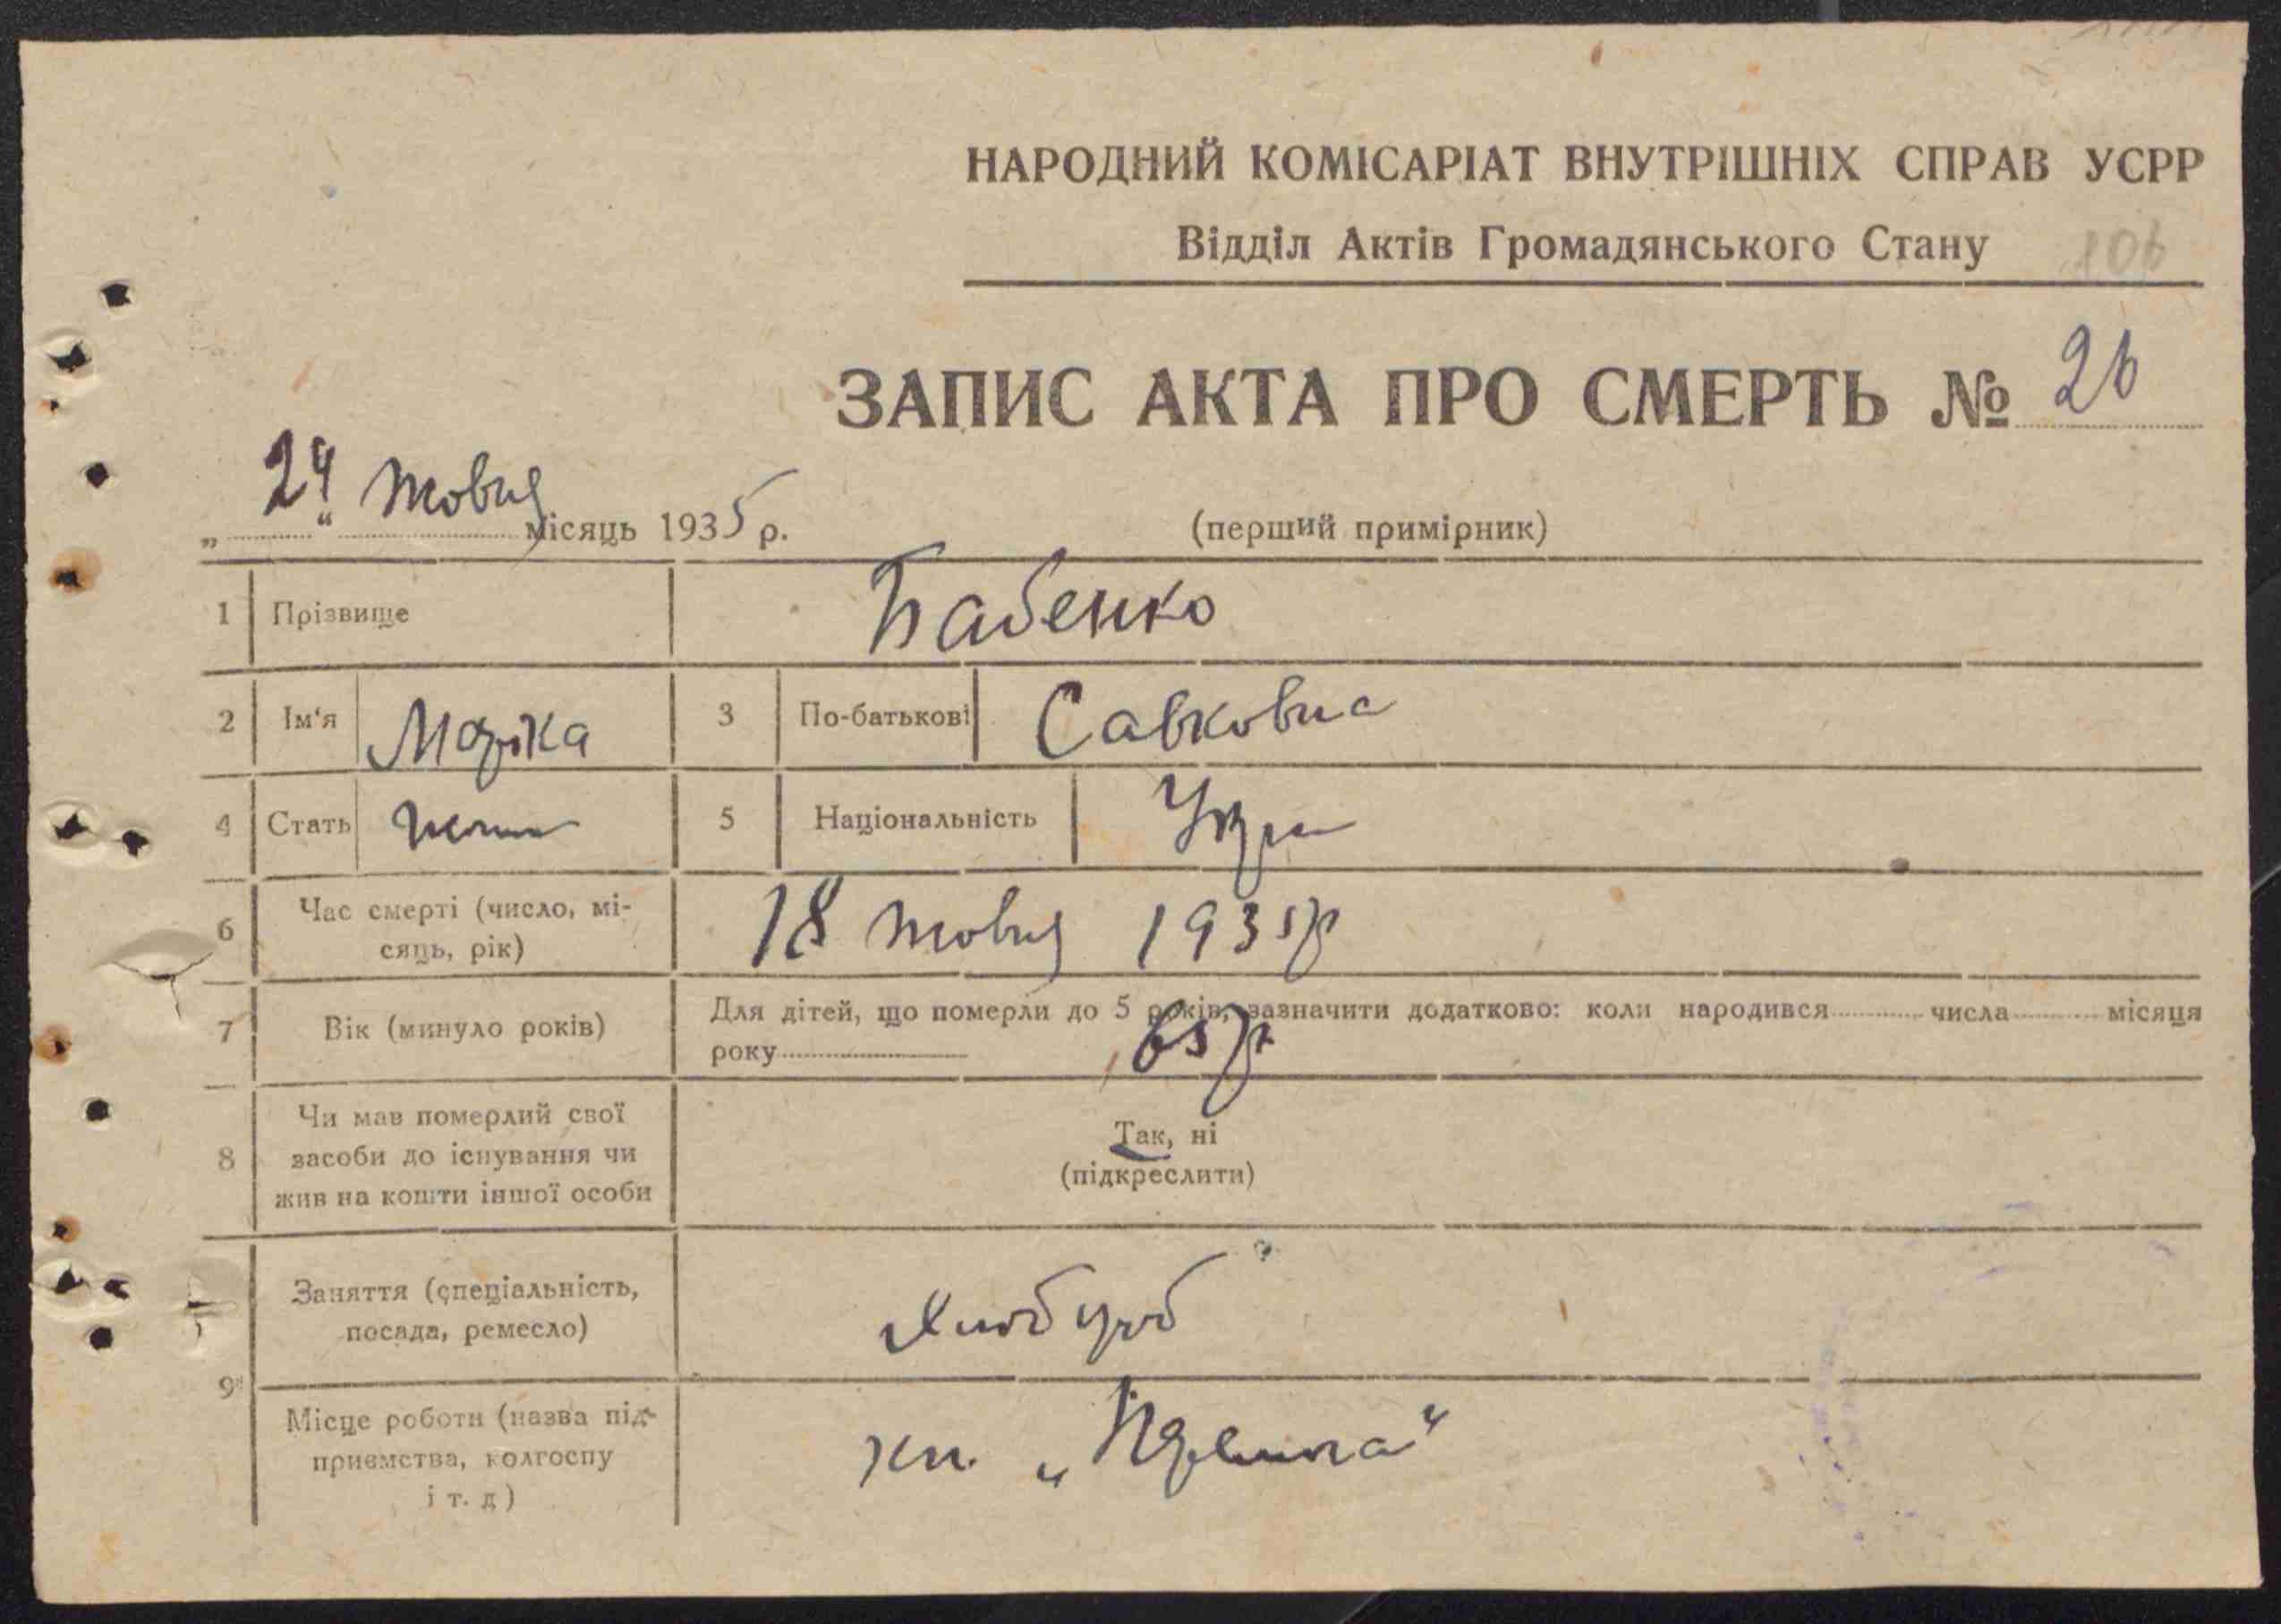 НАРОДНИЙ КОМІСАРІАТ ВНУТРІШНІХ СПРАВ УСРР
Відділ Актів Громадянського Стану 106
ЗАПИС АКТА ПРО СМЕРТЬ № 26
„24“ жовтня місяць 1935 р. (перший примірник)
1 Прізвище Бабенко
2 Ім‘я 3 По-батькові Савковна
4 Стать 5 Національність Укра
6 Час смерті (число, мі-
сяць, рік) 18 жовтня 1935 р
7 Вік (минуло років) Для дітей, що померли до 5 років, зазначити додатково: коли народився числа місяця
року 65 р
8 Чи мав померлий свої
засоби до існування чи
жив на кошти іншої особи
Так, ні
(підкреслити)
9 Заняття (спеціальність,
посада, ремесло) Хлібороб
Місце роботи (назва під-
приємства, колгоспу
і т. д)